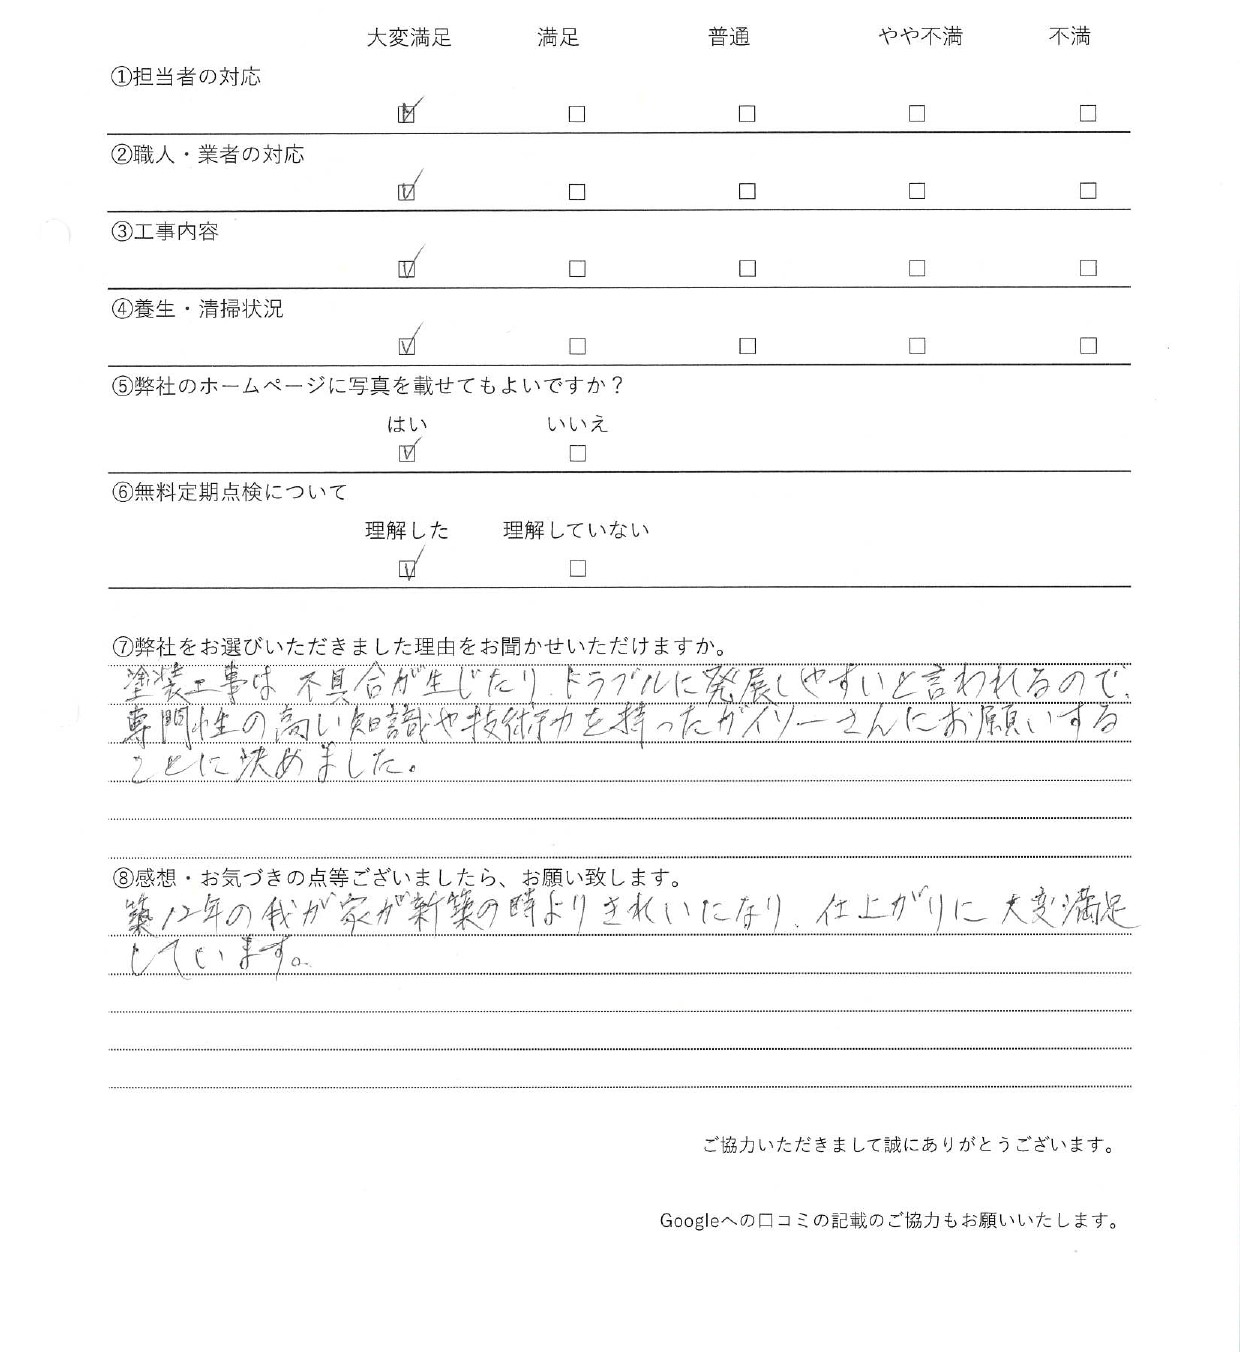 大変満足 満足 普通 やや不満 不満
①担当者の対応
☑ □ □ □ □
②職人・業者の対応
☑ □ □ □ □
③工事内容
☑ □ □ □ □
④養生・清掃状況
☑ □ □ □ □
⑤弊社のホームページに写真を載せてもよいですか？
はい いいえ
☑ □
⑥無料定期点検について
理解した 理解していない
☑ □
⑦弊社をお選びいただきました理由をお聞かせいただけますか。
塗装工事は不具合が生じたり、トラブルに発展しやすいと言われるので、
専門性の高い知識や技術力を持ったガイソーさんにお願いする
ことに決めました。
⑧感想・お気づきの点等ございましたら、お願い致します。
築12年の我が家が新築の時よりきれいになり、仕上がりに大変満足
しています。
ご協力いただきまして誠にありがとうございます。
Googleへの口コミの記載のご協力もお願いいたします。